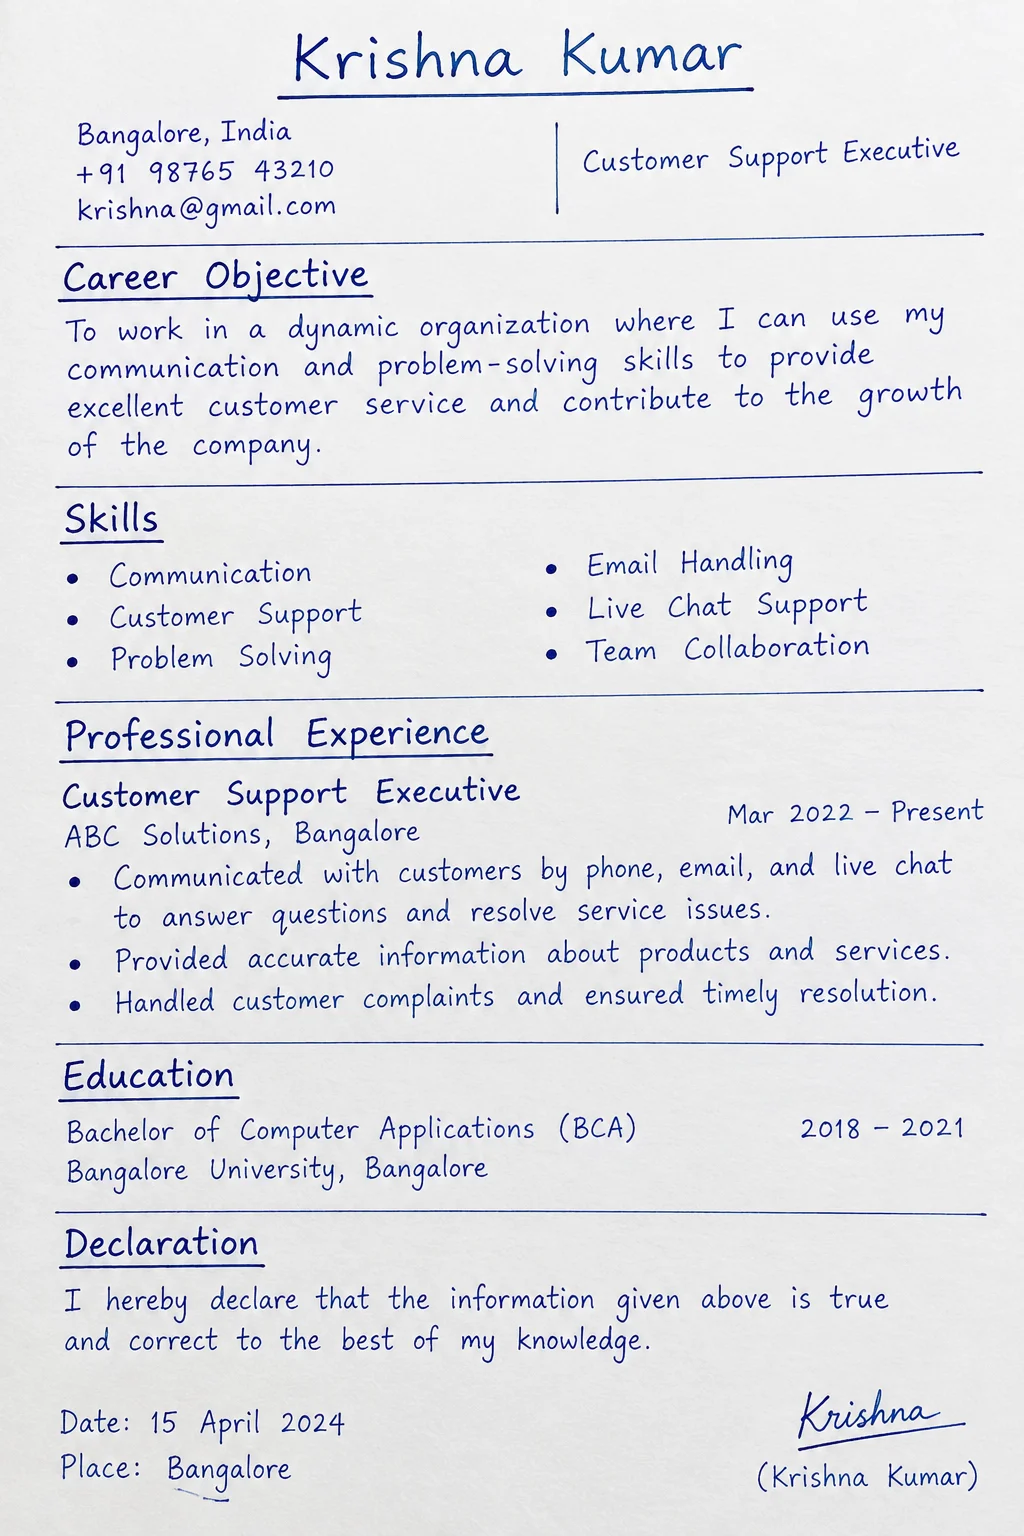 Krishna Kumar
Bangalore, India
+91 98765 43210
krishna@gmail.com
Customer Support Executive
Career Objective
To work in a dynamic organization where I can use my
communication and problem-solving skills to provide
excellent customer service and contribute to the growth
of the company.
Skills
• Communication
• Customer Support
• Problem Solving
• Email Handling
• Live Chat Support
• Team Collaboration
Professional Experience
Customer Support Executive
Mar 2022 – Present
ABC Solutions, Bangalore
• Communicated with customers by phone, email, and live chat
to answer questions and resolve service issues.
• Provided accurate information about products and services.
• Handled customer complaints and ensured timely resolution.
Education
Bachelor of Computer Applications (BCA) 2018 – 2021
Bangalore University, Bangalore
Declaration
I hereby declare that the information given above is true
and correct to the best of my knowledge.
Date: 15 April 2024
Place: Bangalore
Krishna
(Krishna Kumar)